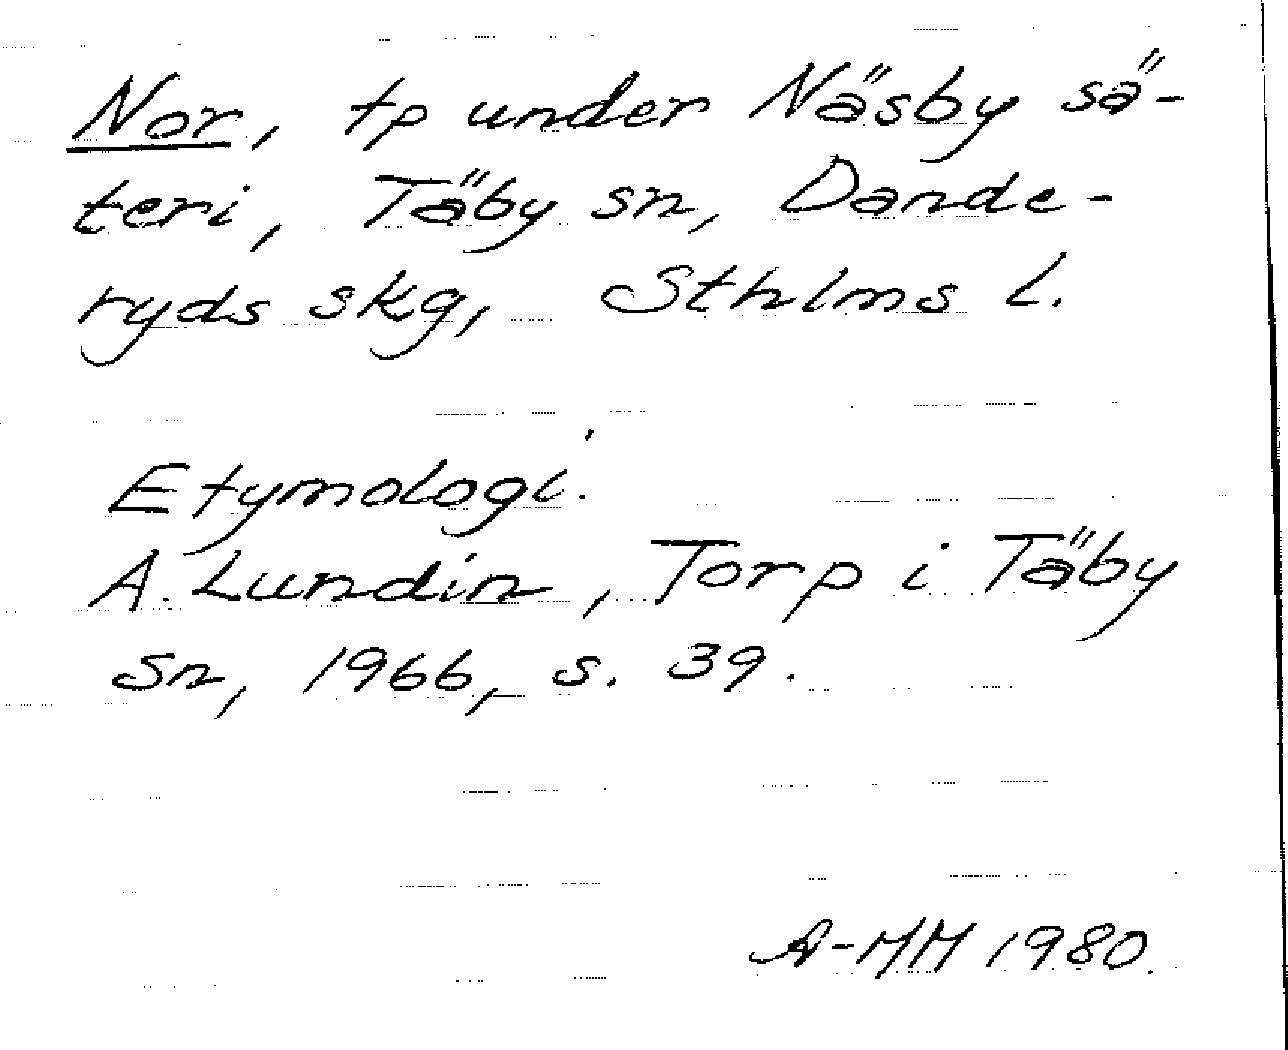 Nor, tp under Näsby sä-
teri, Täby sn, Dande-
ryds skg, Sthlms l.
Etymologi.
A. Lundin, Torp i Täby
sn, 1966, s. 39.
A-MH 1980.